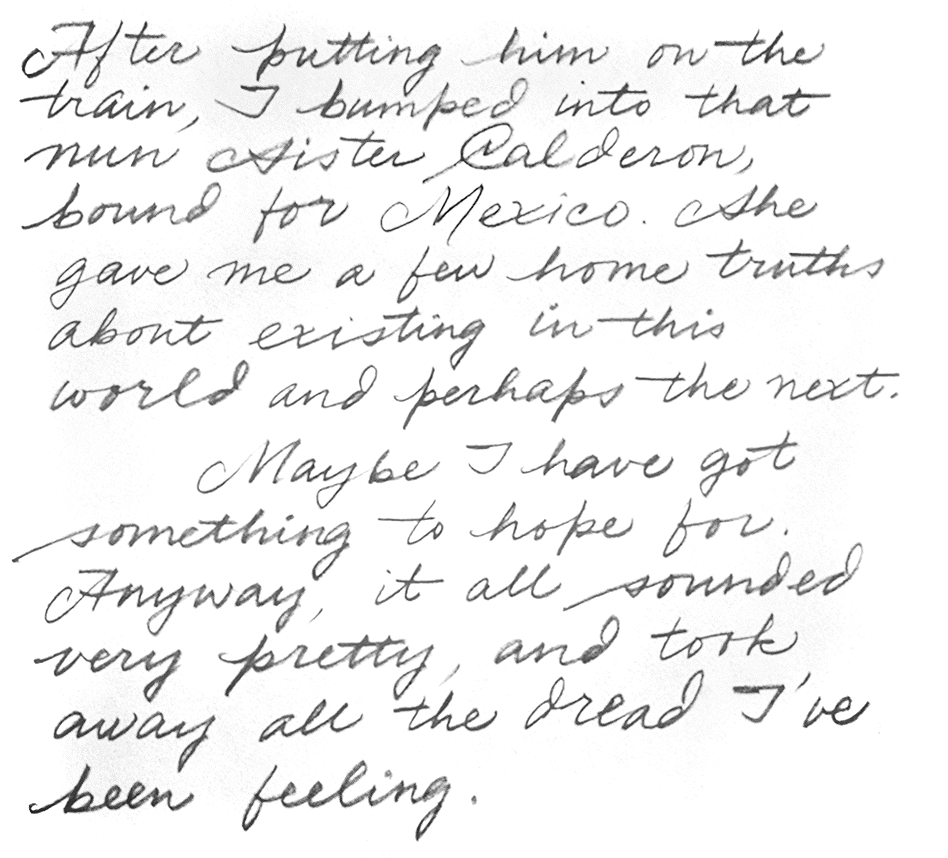 After putting him on the
train, I bumped into that
nun Sister Calderon,
bound for Mexico. She
gave me a few home truths
about existing in this
world and perhaps the next.
Maybe I have got
something to hope for.
Anyway, it all sounded
very pretty, and took
away all the dread I've
been feeling.